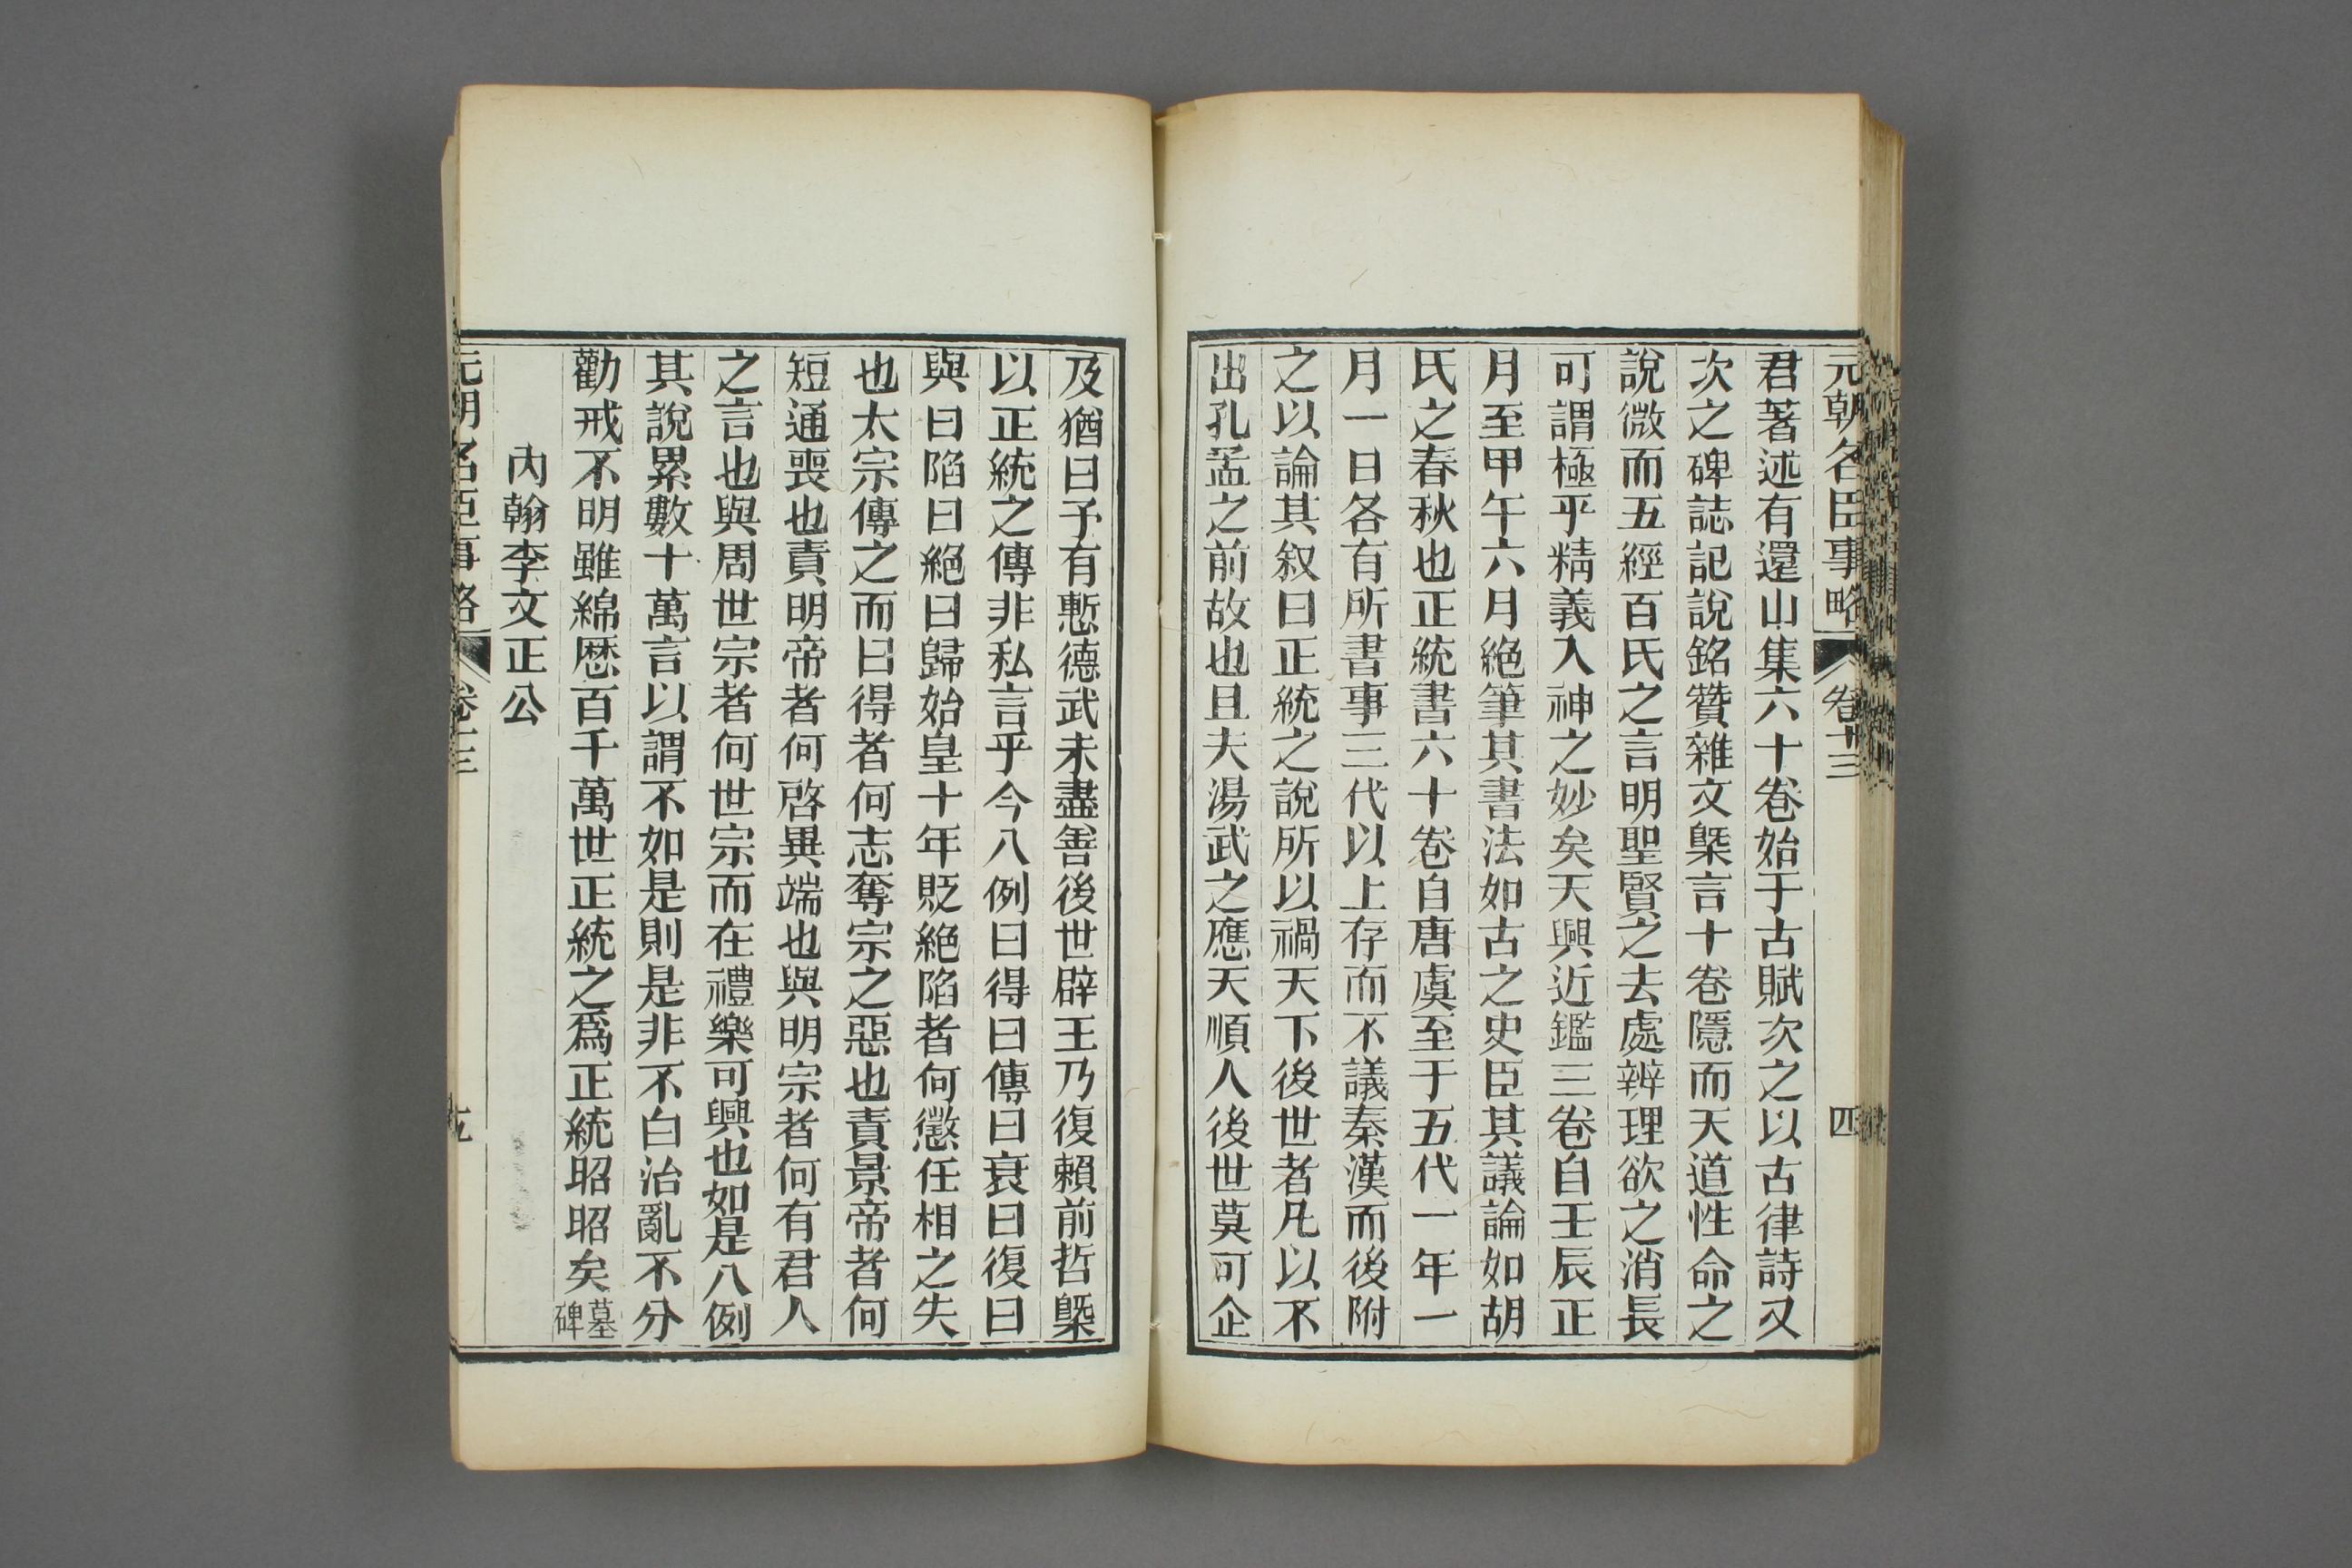 元朝名臣事略 卷十三 四
君著述有還山集六十卷始于古賦次之以古律詩又
次之碑誌記說銘贊雜文槩言十卷隱而天道性命之
說微而五經百氏之言明聖賢之去處辨理欲之消長
可謂極乎精義入神之妙矣天興近鑑三卷自壬辰正
月至甲午六月絕筆其書法如古之史臣其議論如胡
氏之春秋也正統書六十卷自唐虞至于五代一年一
月一日各有所書事三代以上存而不議秦漢而後附
之以論其叙曰正統之說所以禍天下後世者凡以不
出孔孟之前故也且夫湯武之應天順人後世莫可企
及猶曰予有慙德武未盡善後世辟王乃復賴前哲槩
以正統之傳非私言乎今八例曰得曰傳曰衰曰復曰
與曰陷曰絕曰歸始皇十年貶絕陷者何懲任相之失
也太宗傳之而曰得者何志奪宗之惡也責景帝者何
短通喪也責明帝者何啓異端也與明宗者何有君人
之言也與周世宗者何世宗而在禮樂可興也如是八例
其說累數十萬言以謂不如是則是非不白治亂不分
勸戒不明雖綿歴百千萬世正統之爲正統昭昭矣墓碑
內翰李文正公
元朝名臣事略 卷十三